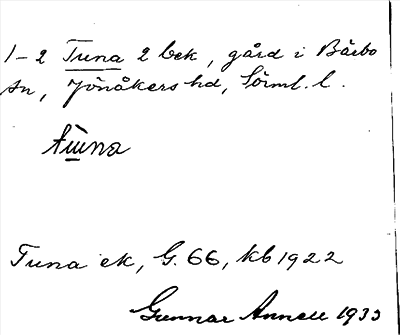 1-2 Tuna 2 bek, gård i Bärbo
sn, Jönåkers hd, Sörml. l.
Tuna ek, G. 66, kb 1922
Gunnar Annell 1933